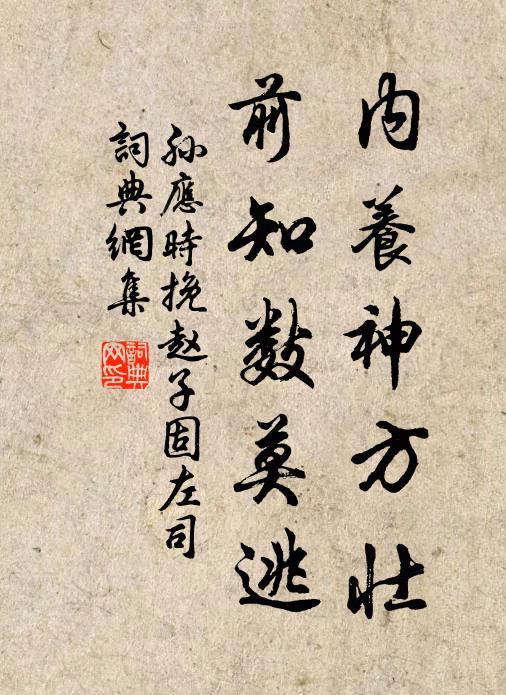 內養神方壯
前知數莫逃
孙應時挽赵子固左司
詞典網集
詞典网印